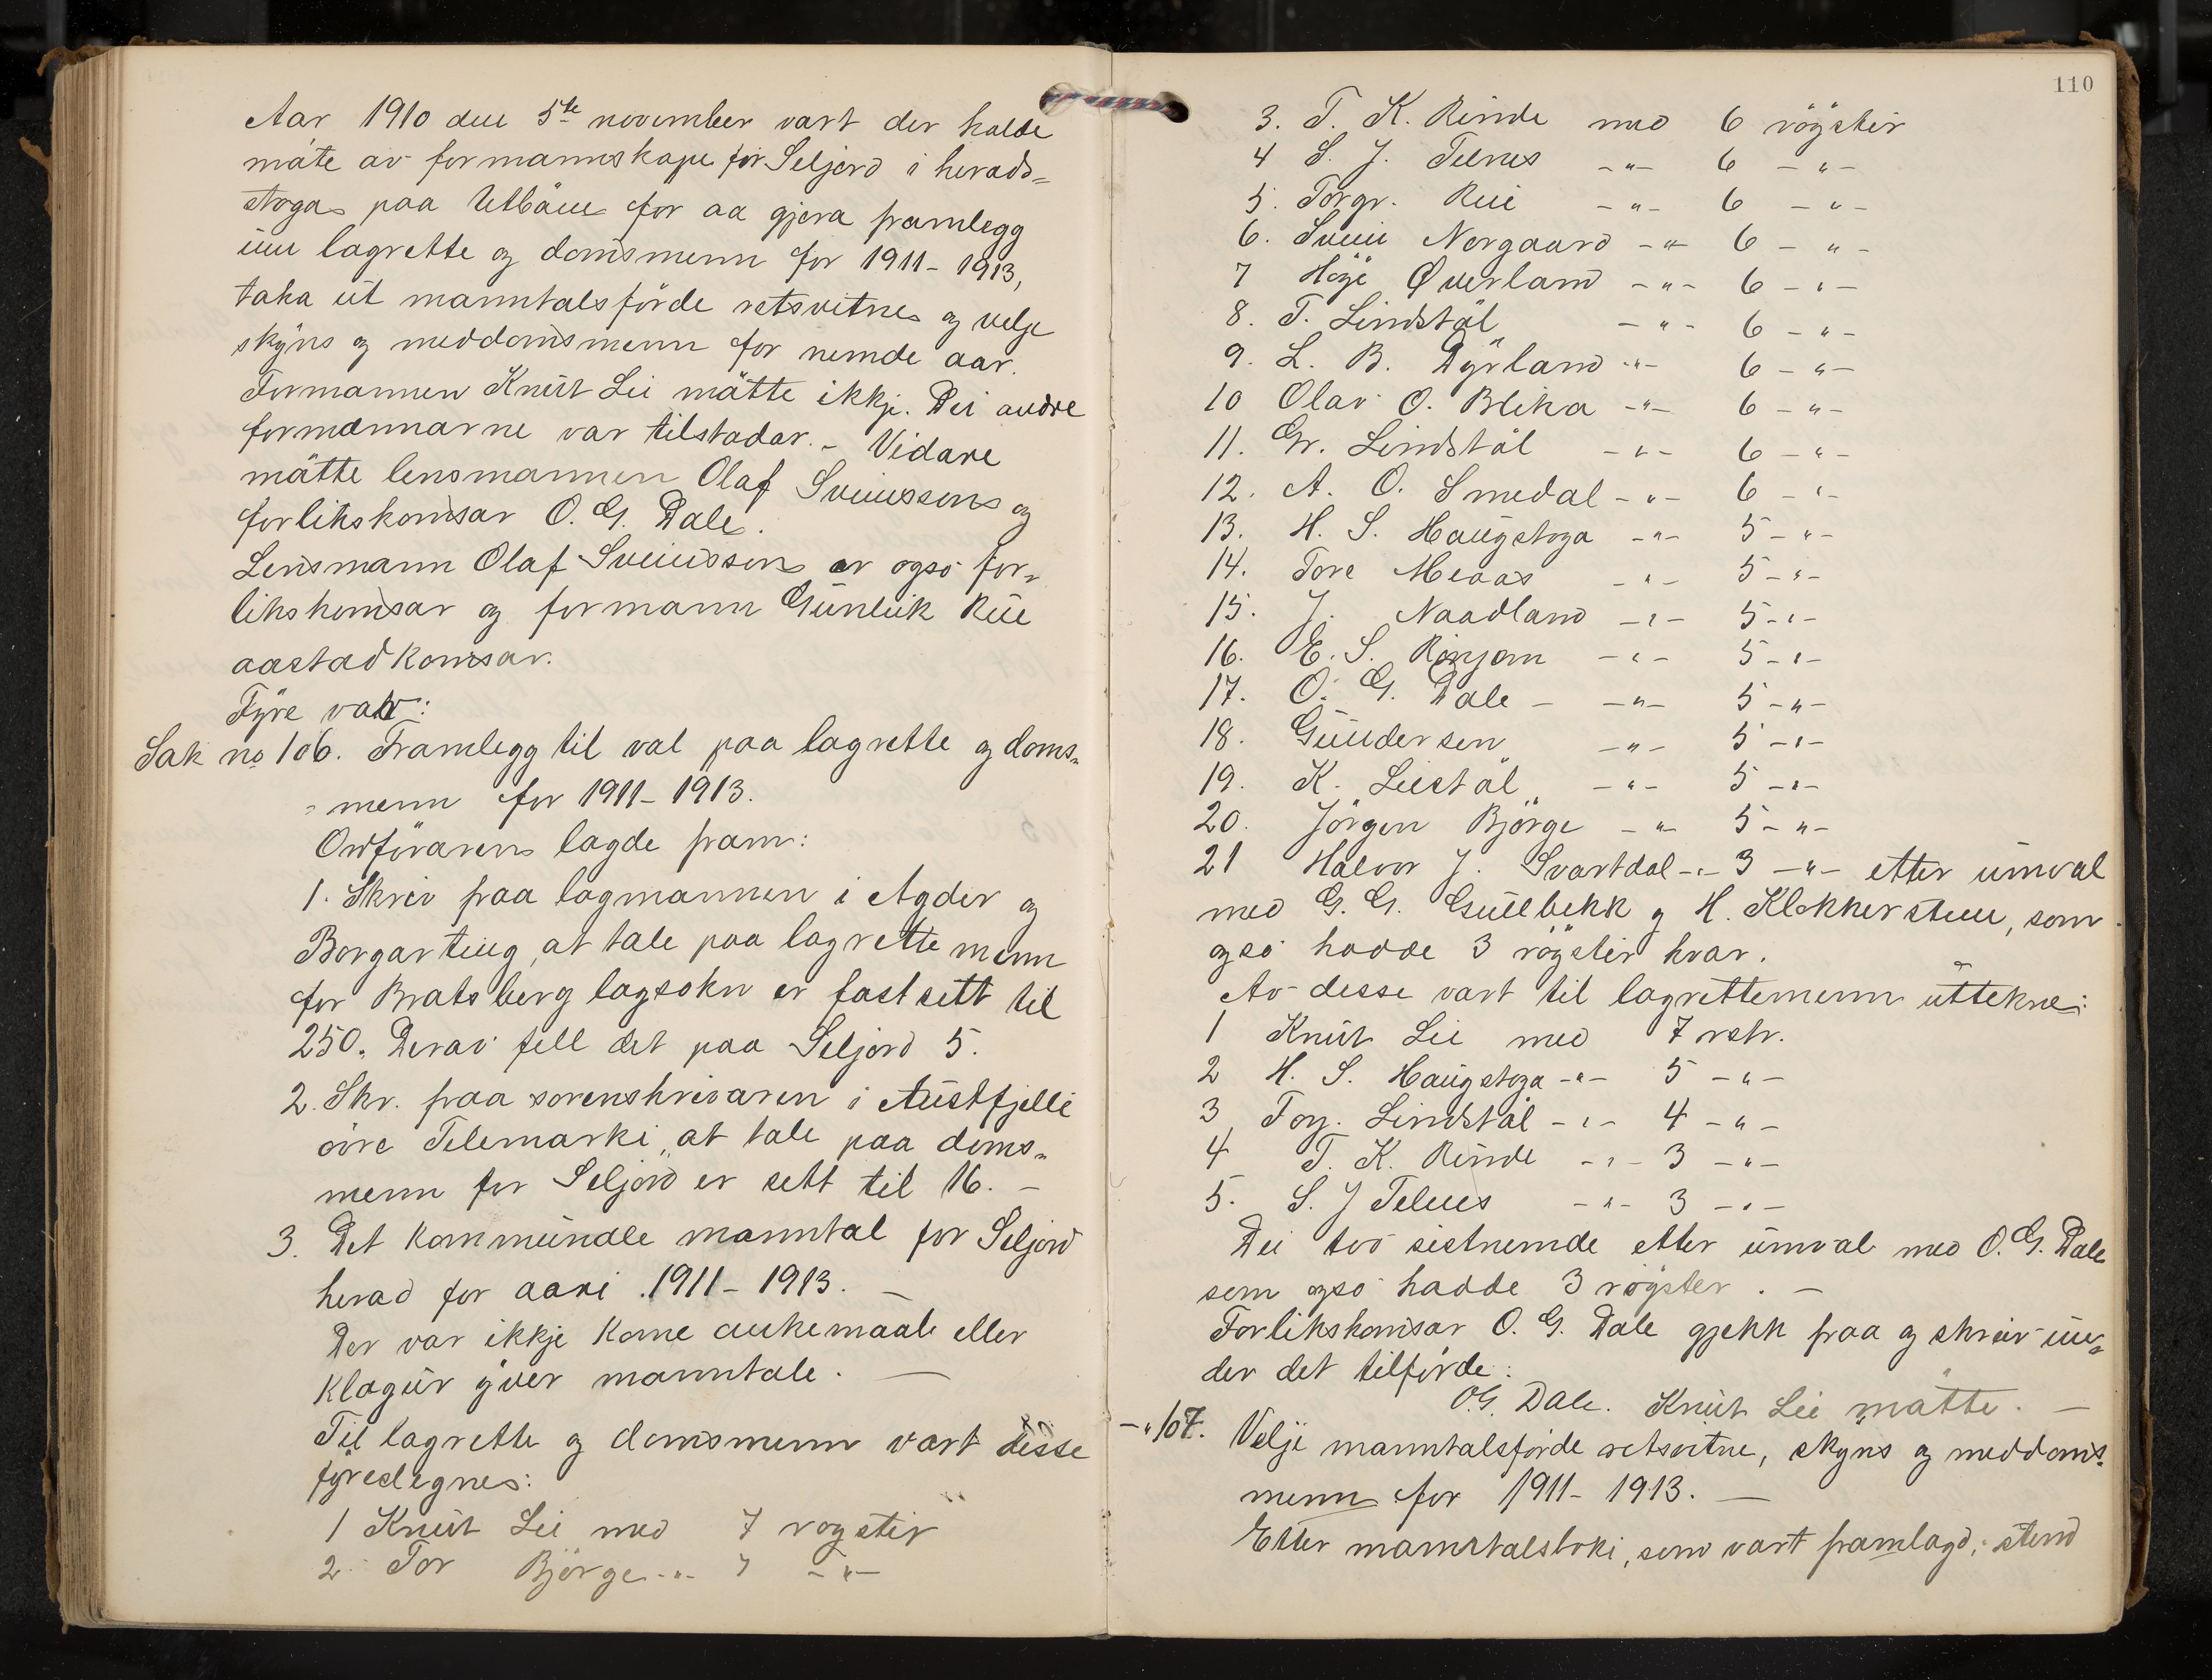 Aar 1910 den 5te november vart der halde
møte av formannskape for Seljord i herads=
stoga paa Utbøen for aa gjera framlegg
um lagrette og domsmenn for 1911-1913,
taka ut manntalsførde retsvitne og velge
skyns og meddomsmenn for nemde aar.
Formannen Knut Lie møtte ikkje. Dei andre
formannarne var tilstadar. - Vidare
møtte lensmannen Olaf Sveinsson og
forlikskomsar O. G. Dale.
Lensmann Olaf Sveinsson er ogso for=
likskomsar og formann Gunleik Rue
aastadkomsar.
Fyre var:
Sak no 106. Framlegg til val paa lagrette og doms=
=menn for 1911-1913.
Ordføraren lagde fram:
1. Skriv fraa lagmannen i Agder og
Borgarting, at tale paa lagrettemenn
for Bratsberg lagsokn er fastsett til
250. Derav fell det paa Seljord 5.
2. Skr. fraa sorenskrivaren i Austfjelle
øvre Telemarki, at tale paa doms=
menn for Seljord er sett til 16. -
3. Det kommundle manntal for Seljord
herad for aari 1911-1913. -
Der var ikkje kome aukemaal eller
klagur yver manntale. -
Til lagrette og domsmenn vart disse
fyreslegne:
1 Knut Lie med 7 røgster
2. Tor Bjørge -"- 7 -"-
110
3. T. K. Rinde med 6 røyster
4 S. J. Telnes -"- 6 -"-
5. Torgr. Rui -"- 6 -"-
6. Svein Norgaard -"- 6 -"-
7 Høye Øverland -"- 6 -"-
8. T. Lindstøl -"- 6 -"-
9. L. B. Dyrland -"- 6 -"-
10 Olav O. Bleka -"- 6 -"-
11. Gr. Lindstøl -"- 6 -"-
12. A. O. Smedal -"- 6 -"-
13. H. S. Haugstoga -"- 5 -"-
14. Tore Meaas -"- 5 -"-
15. J. Naadland -"- 5 -"-
16. E. S. Rinjom -"- 5 -"-
17. O. G. Dale - -"- 5 -"-
18. Gundersen -"- 5 -"-
19. K. Liestøl -"- 5 -"-
20. Jørgen Bjørge -"- 5 -"-
21 Halvor J. Svartdal -"- 3 -"- etter umval
med G. G. Gullbekk og H. Klokkerstuen, som
ogso hadde 3 røyster kvar.
Av desse vart til lagrettemenn uttekne:
1 Knut Lie med 7 rstr.
2 H. S. Haugstoga -"- 5 -"-
3 Lindstøl -"- 4 -"-
4 T. K. Rinde -"- 3 -"-
5. S. J Telnes -"- 3 -"-
Dei tvo sistnemde etter umval med O. G. Dale
som ogso hadde 3 røyster. -
Forlikskomsar O. G. Dale gjekk fraa og skreiv un=
der det tilførde:
O.G. Dale. Knut Lie møtte. -
-"107. Velje manntalsførde retsvitne, skyns og meddoms=
menn for 1911-1913. -
Etter manntalsboki, som vart framlagd, stend